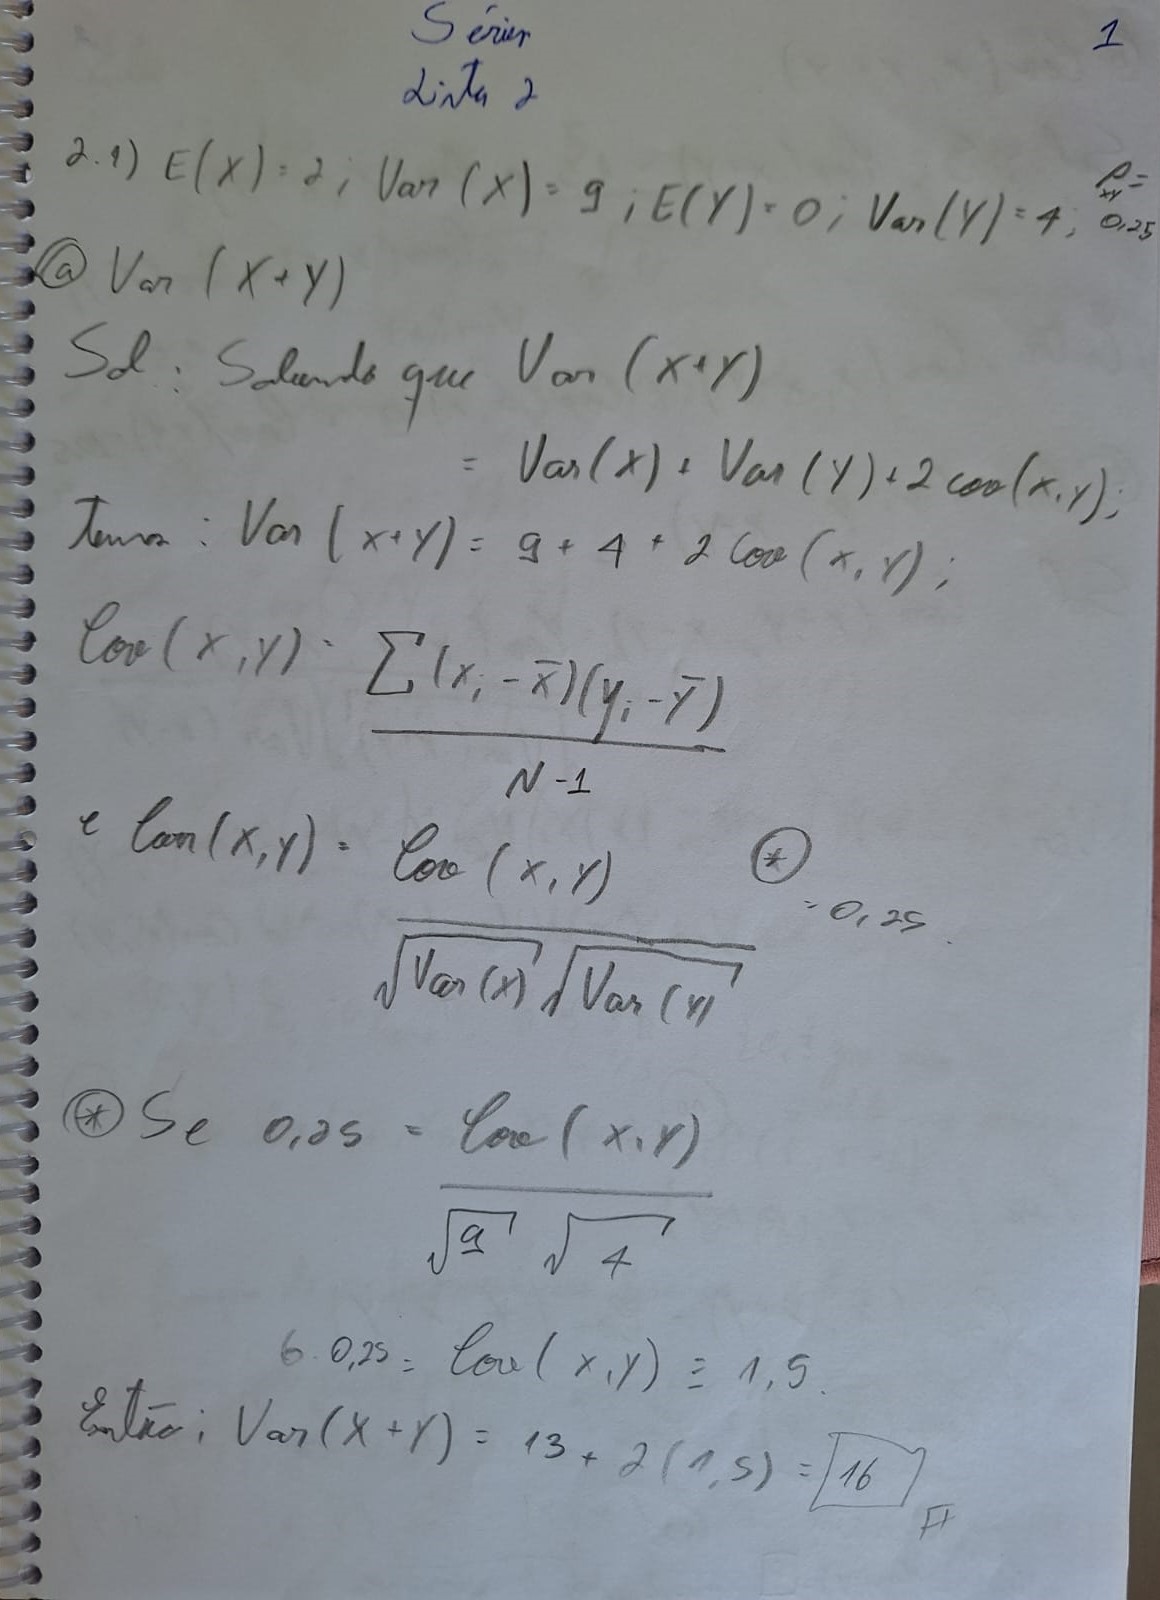 Séries
1
Lista 2
2.1) E(X) = 2 ; Var (X) = 9 ; E(Y) = 0 ; Var(Y) = 4 ; ρ_XY = 0,25
(a) Var (X+Y)
Sol : Sabendo que Var (X+Y)
= Var(X) + Var (Y) + 2 cov(X,Y);
Temos : Var (X+Y) = 9 + 4 + 2 Cov (X, Y) ;
Cov(X,Y) = Σ(x_i - x̄)(y_i - ȳ)
N-1
e Corr(X,Y) = Cov (X,Y) (*) = 0,25.
√Var(X) √Var(Y)
(*) Se 0,25 = Cov (X,Y)
√9 √4
6 . 0,25 = Cov (X,Y) = 1,5.
Então ; Var(X+Y) = 13 + 2(1,5) = 16